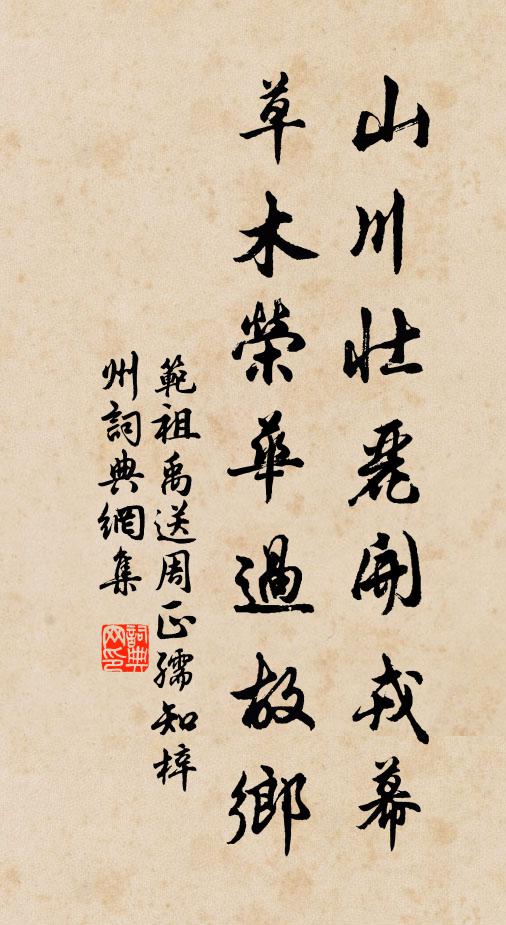 山川壯麗開戎幕
草木榮華過故鄉
範祖禹送周正孺知梓
州詞典網集
詞典网印